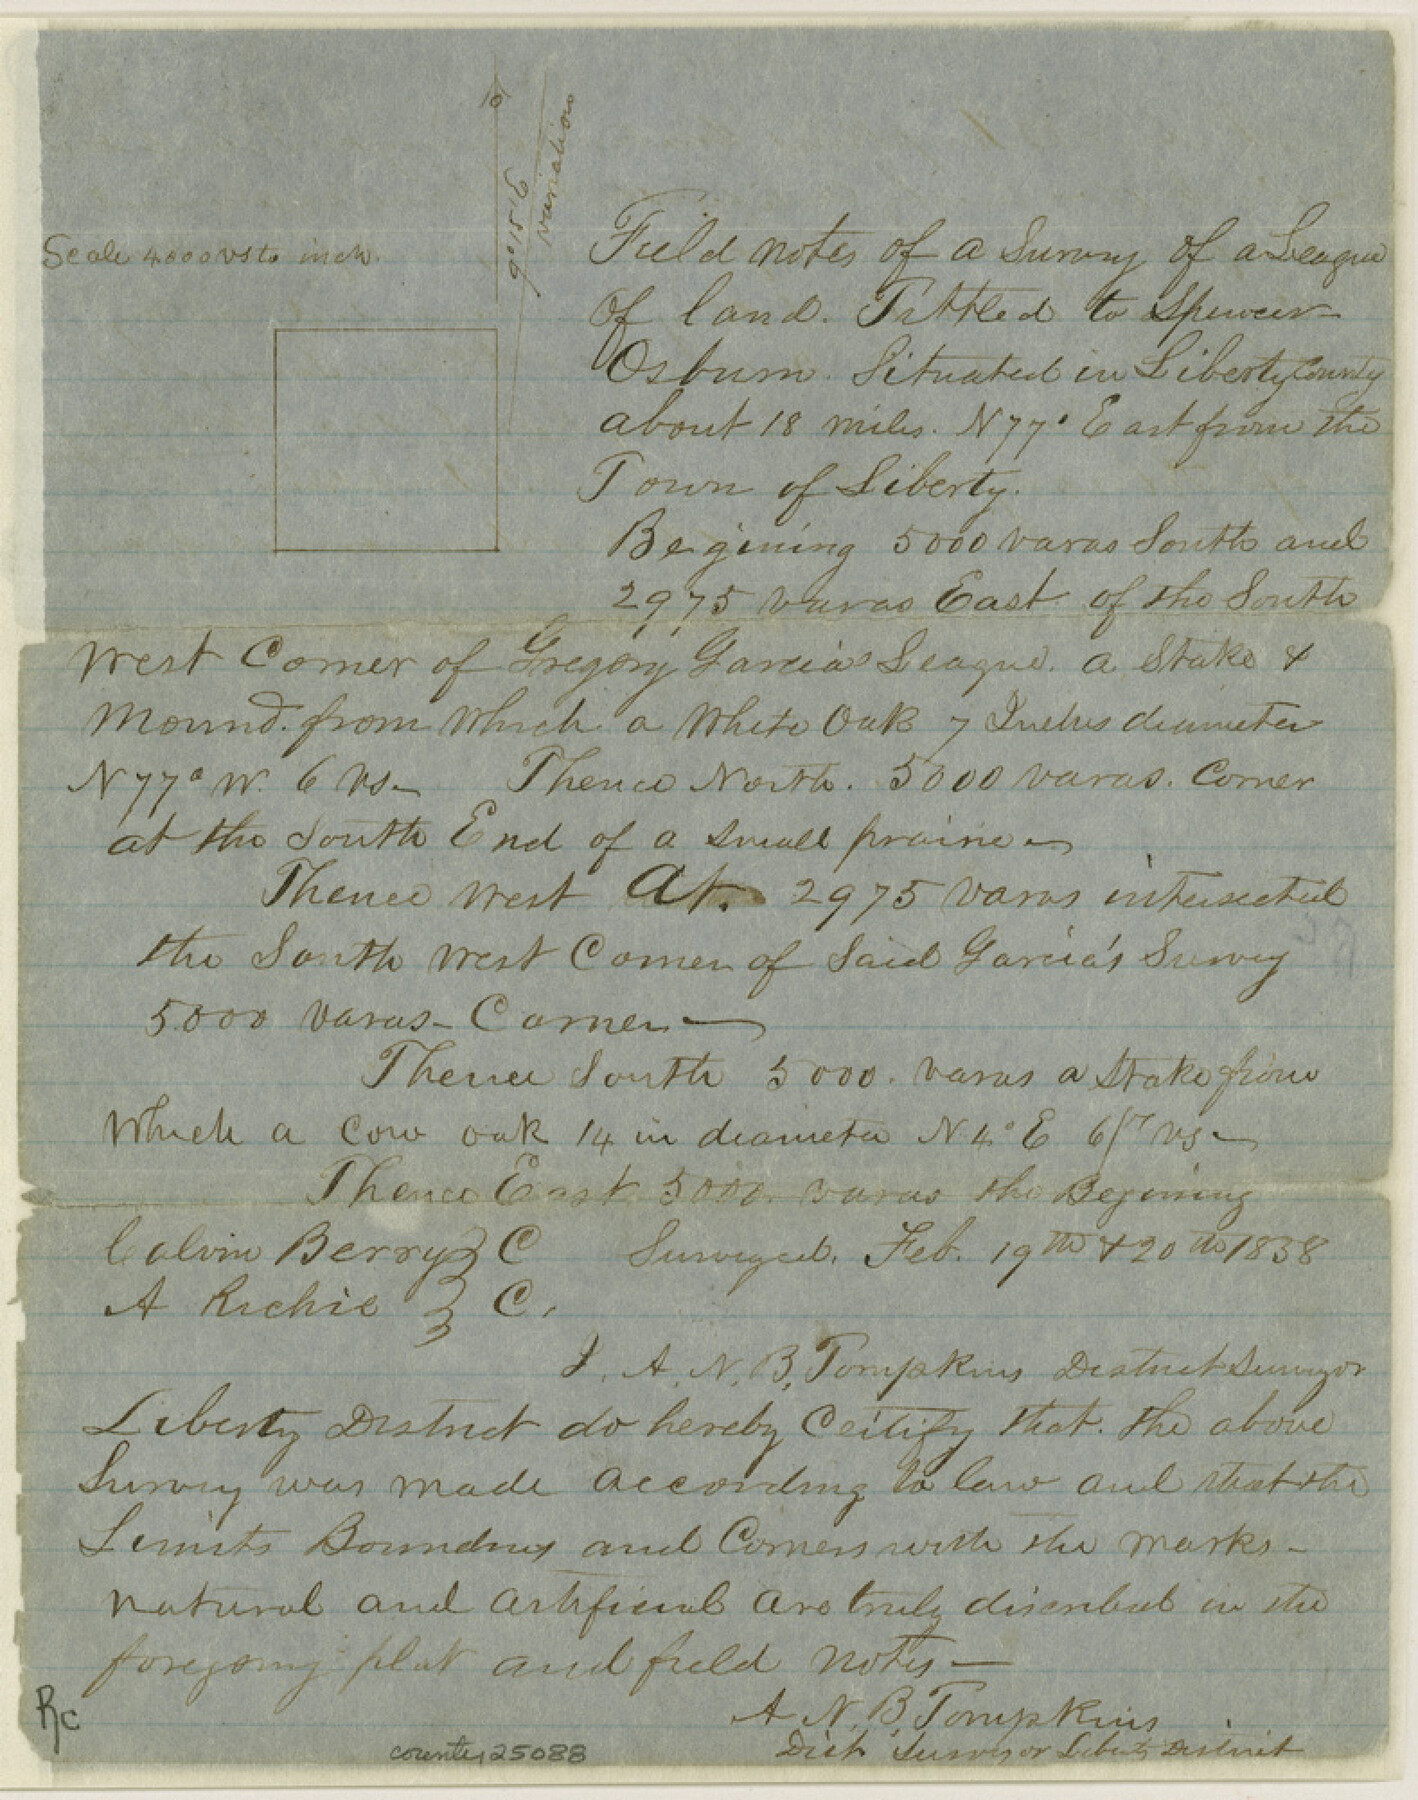 9° 15' E
variation
Scale 4000 vs to inch.
Field notes of a Survey of a League
of land. Tittled to Spencer
Osburn. Situated in Liberty County
about 18 miles. N 77° East from the
Town of Liberty.
Begining 5000 varas South and
2975 varas East of the South
West Corner of Gregory Garcia's League. a Stake &
Mound. from Which a White Oak 7 Inches diameter
N 77° W. 6 vs. Thence North. 5000 varas. Corner
at the South End of a small prairie
Thence West At. 2975 varas intersected
the South West Corner of Said Garcia's Survey
5000 varas - Corner
Thence South 5000. varas a Stake from
Which a Cow oak 14 in diameter N 4° E vs
Thence East 5000. varas the Begining
Calvin Berry } C Surveyed. Feb. 19th & 20th 1838
A Richie } C.
I. A. N. B. Tompkins District Surveyor
Liberty District do hereby Ceitify that. the above
Survey was made according to law and that the
Limits Boundrys and Corners with the marks -
natural and artificial are truly discribed in the
foregoing plat and field notes -
A N. B. Tompkins
Dist. Surveyor Liberty District
Rc
counter 25088